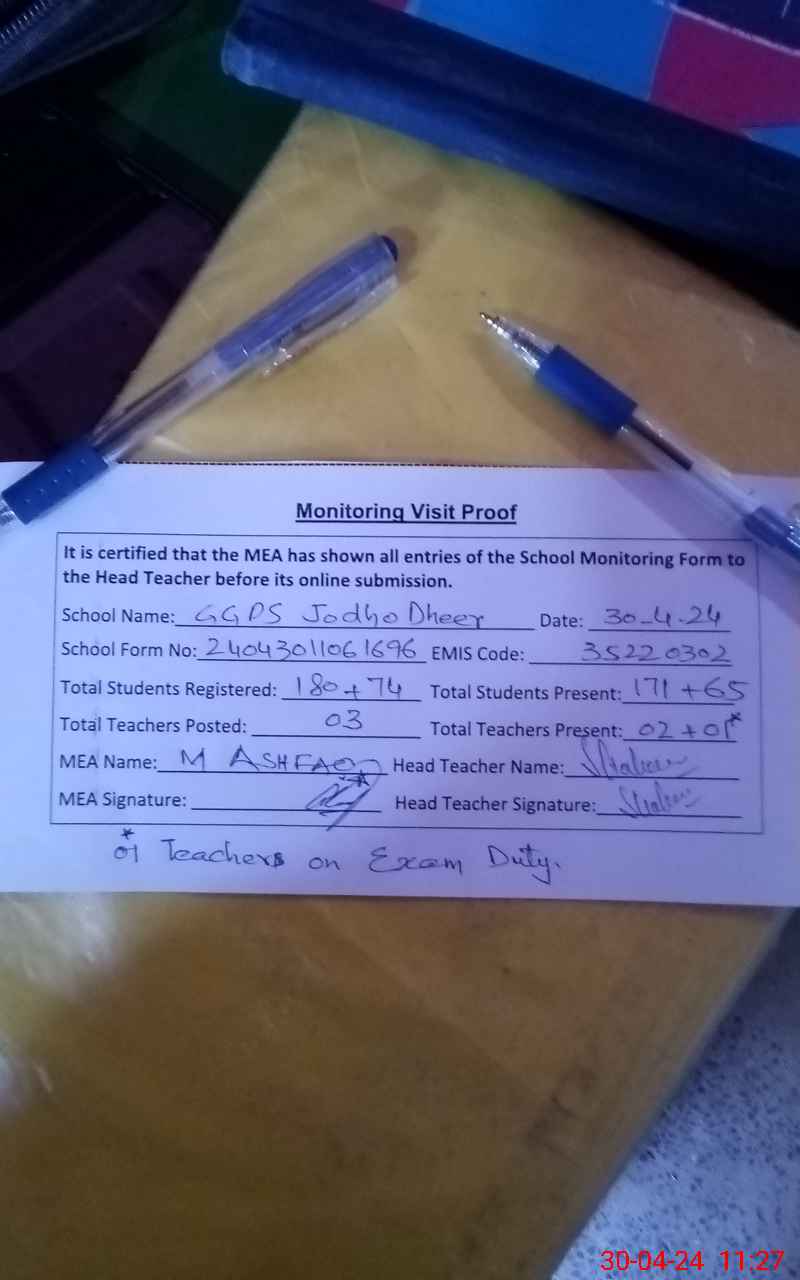 Monitoring Visit Proof
It is certified that the MEA has shown all entries of the School Monitoring Form to
the Head Teacher before its online submission.
School Name: GGPS Jodho Dheer Date: 30-4-24
School Form No: 24043011061696 EMIS Code: 35220302
Total Students Registered: 180+74 Total Students Present: 171+65
Total Teachers Posted: 03 Total Teachers Present: 02+01*
MEA Name: M ASHFAQ Head Teacher Name:
MEA Signature: Head Teacher Signature:
*01 Teachers on Exam Duty.
30-04-24 11:27